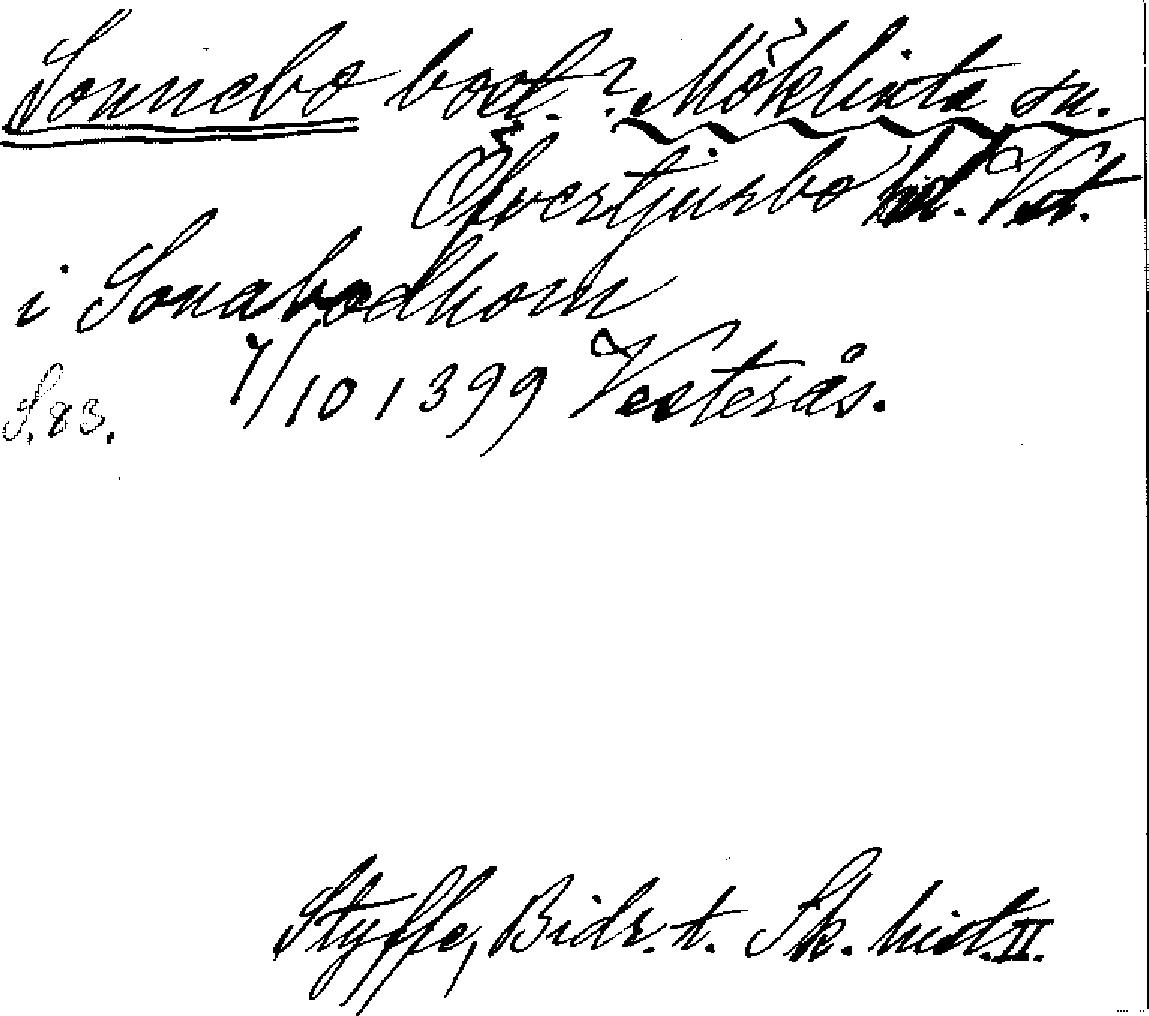 Sonnebo bost.? Möklinta sn.
Övertjurbo hd. Vst.
i Sonabodhom
7/10 1399 Vesterås.
S. 83.
Styffe, Bidr. t. Sk. hist. II.